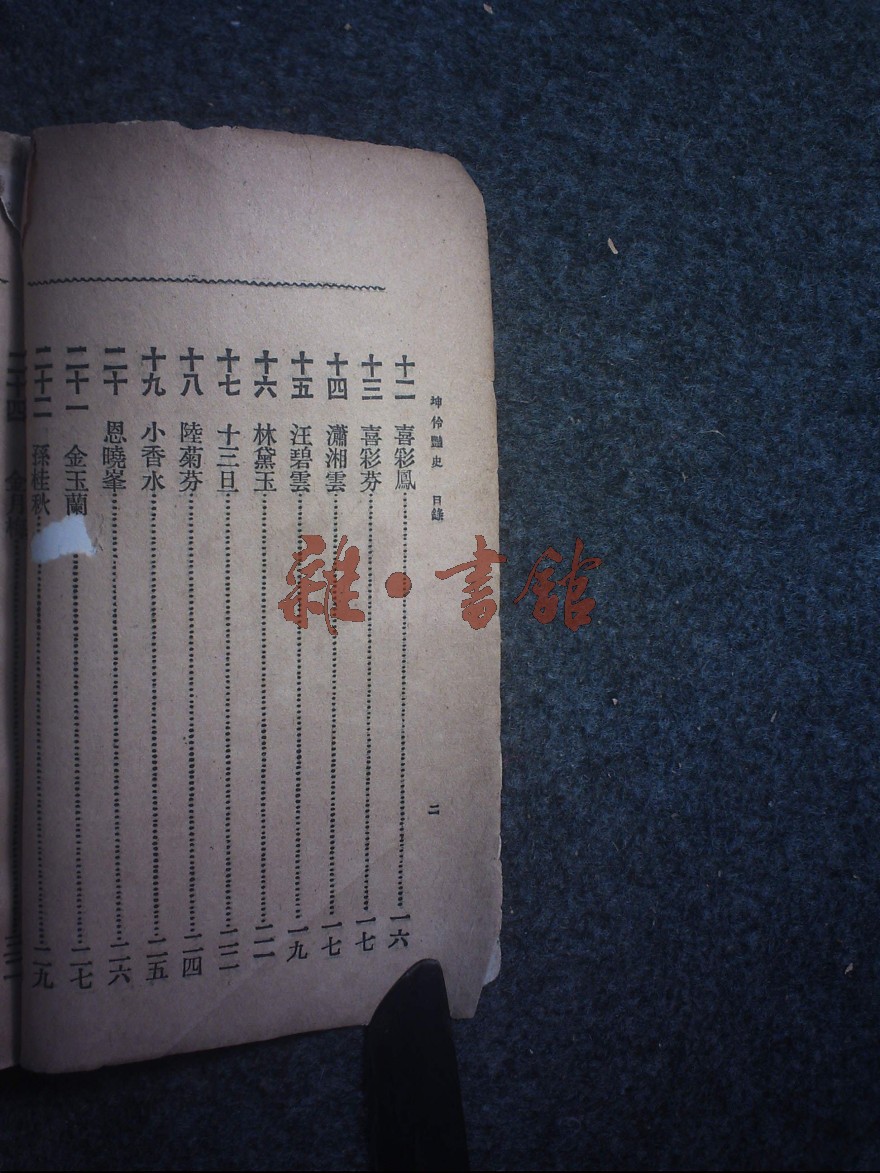 坤伶豔史 目錄 二
十二 喜彩鳳 一六
十三 喜彩芬 一七
十四 瀟湘雲 一七
十五 汪碧雲 一九
十六 林黛玉 二一
十七 十三旦 二二
十八 陸菊芬 二四
十九 小香水 二五
二十 恩曉峯 二六
二十一 金玉蘭 二七
二十二 孫桂秋 二九
二十四 金月
雜·書館